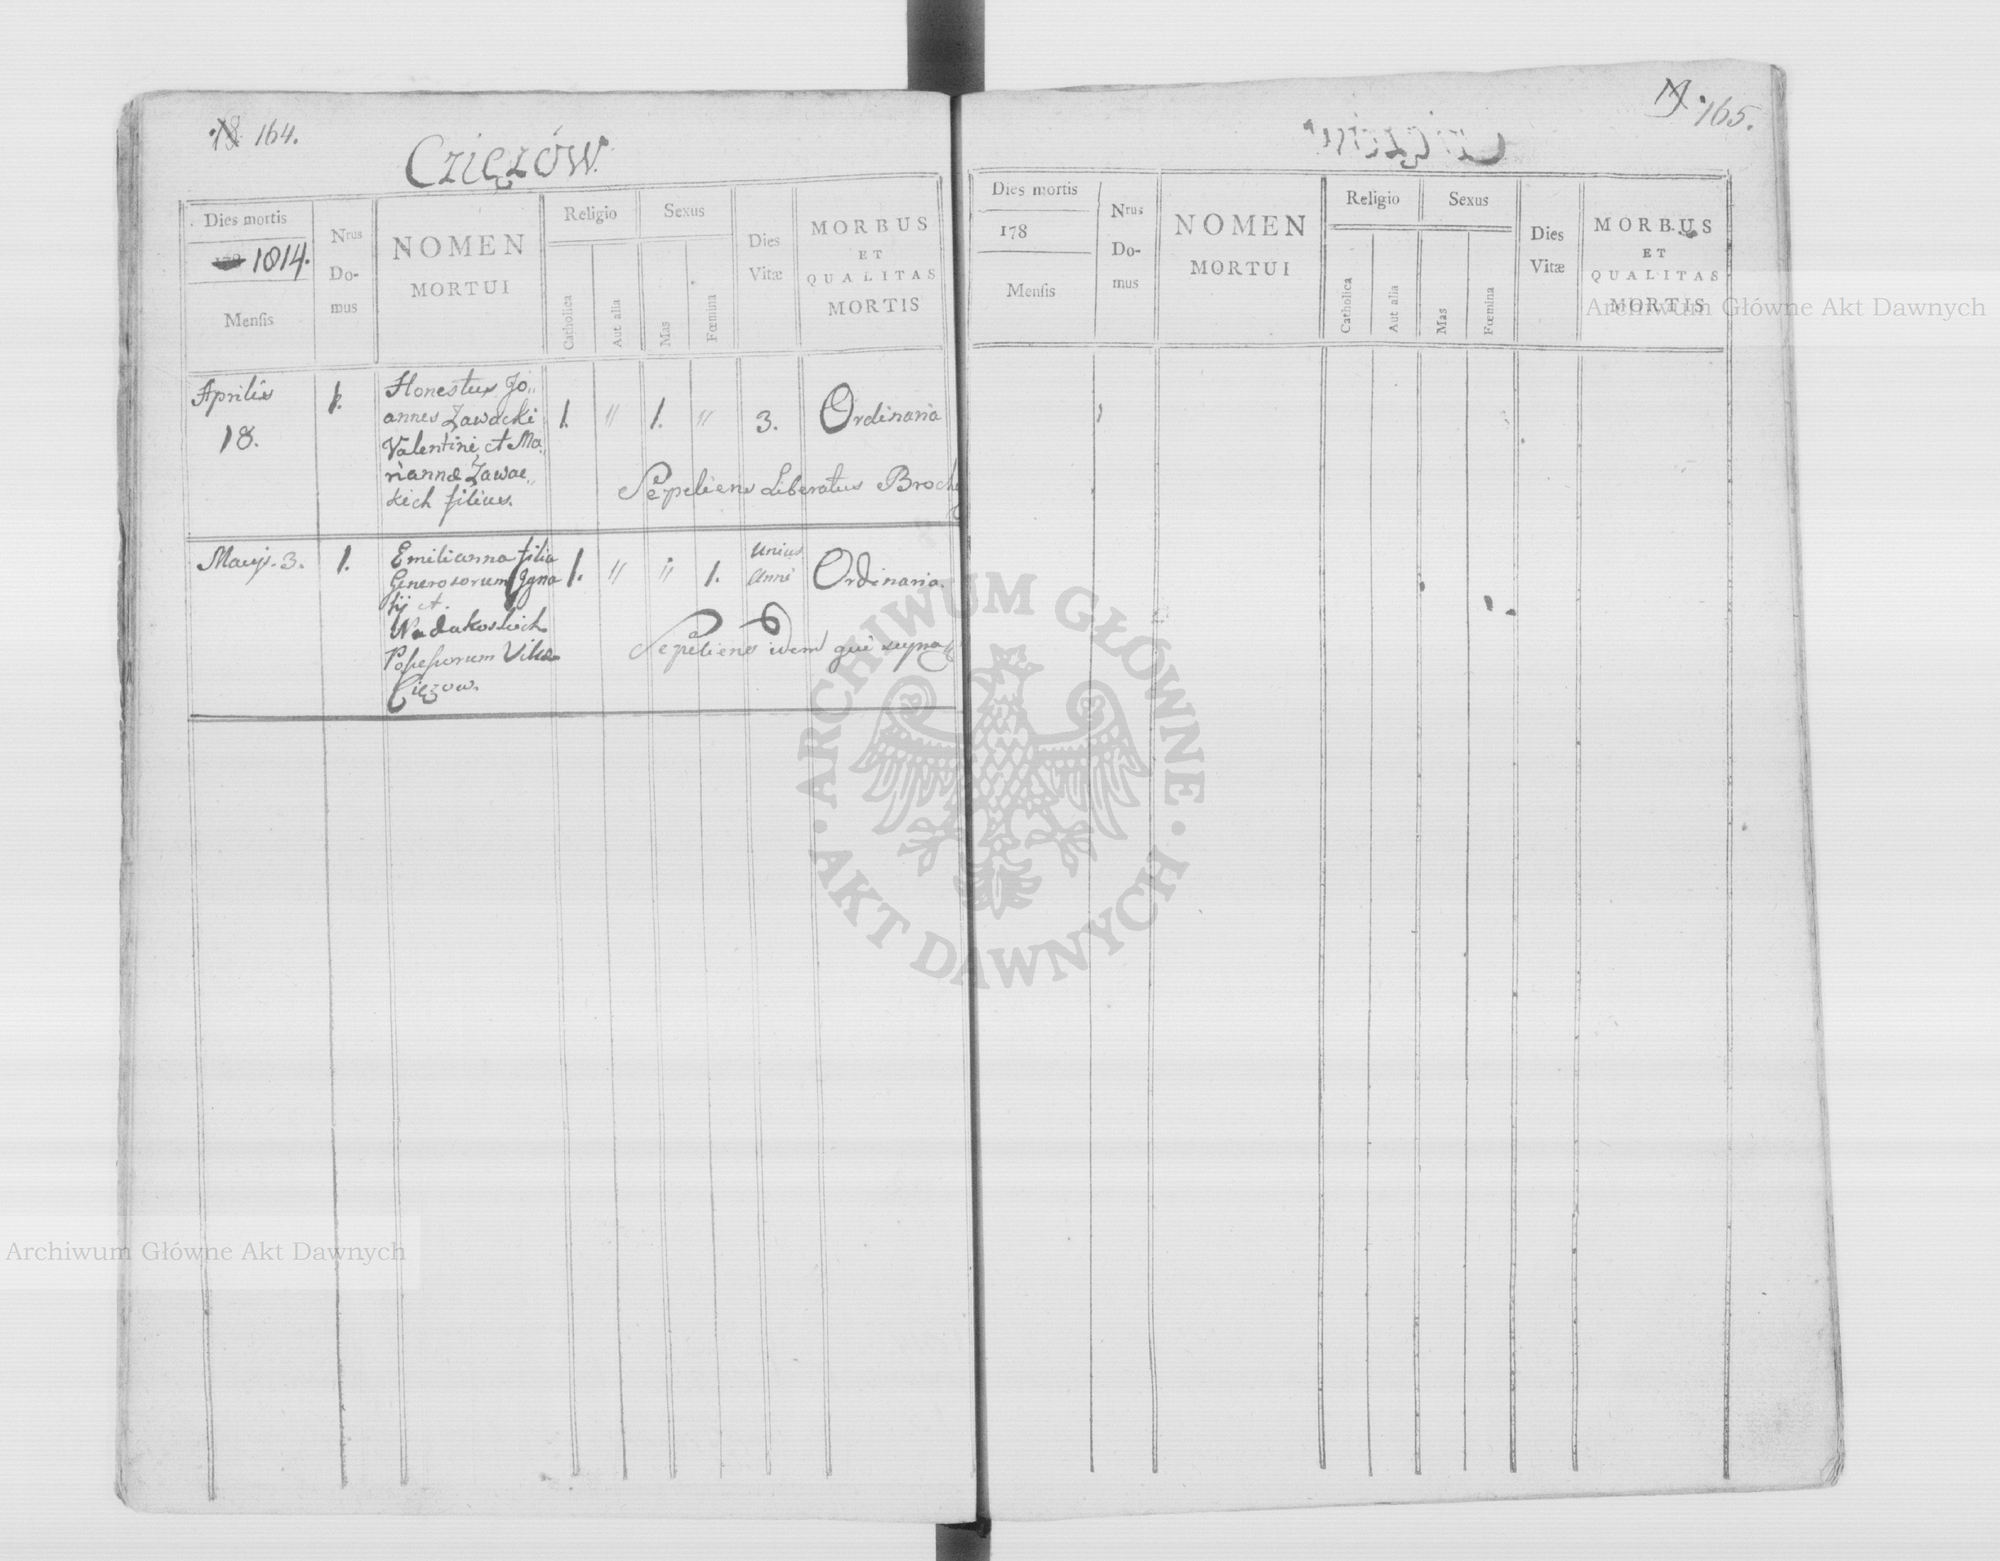 164.
Czięzów.
Dies mortis
1814.
Mensis
Nrus
Do-
mus
NOMEN
MORTUI
Religio
Catholica
Aut alia
Sexus
Mas
Fœmina
Dies
Vitæ
MORBUS
ET
QUALITAS
MORTIS
Aprilis
18.
1.
Honestus Jo„
annes Zawacki
Valentini, et Ma„
riannæ Zawac„
kich filius.
1.
"
1.
"
3.
Ordinaria
Sepeliens Liberatus
Maij. 3.
1.
Emilianna filia
Generosorum Igna
tij et
Wadakoskich
Possessorum Villæ
Cięzow.
1.
"
"
1.
Unius
Anni
Ordinaria.
Sepeliens idem qui supra
165.
Dies mortis
178
Mensis
Nrus
Do-
mus
NOMEN
MORTUI
Religio
Catholica
Aut alia
Sexus
Mas
Fœmina
Dies
Vitæ
MORBUS
ET
QUALITAS
MORTIS
Archiwum Główne Akt Dawnych
ARCHIWUM GŁÓWNE · AKT DAWNYCH ·
Archiwum Główne Akt Dawnych